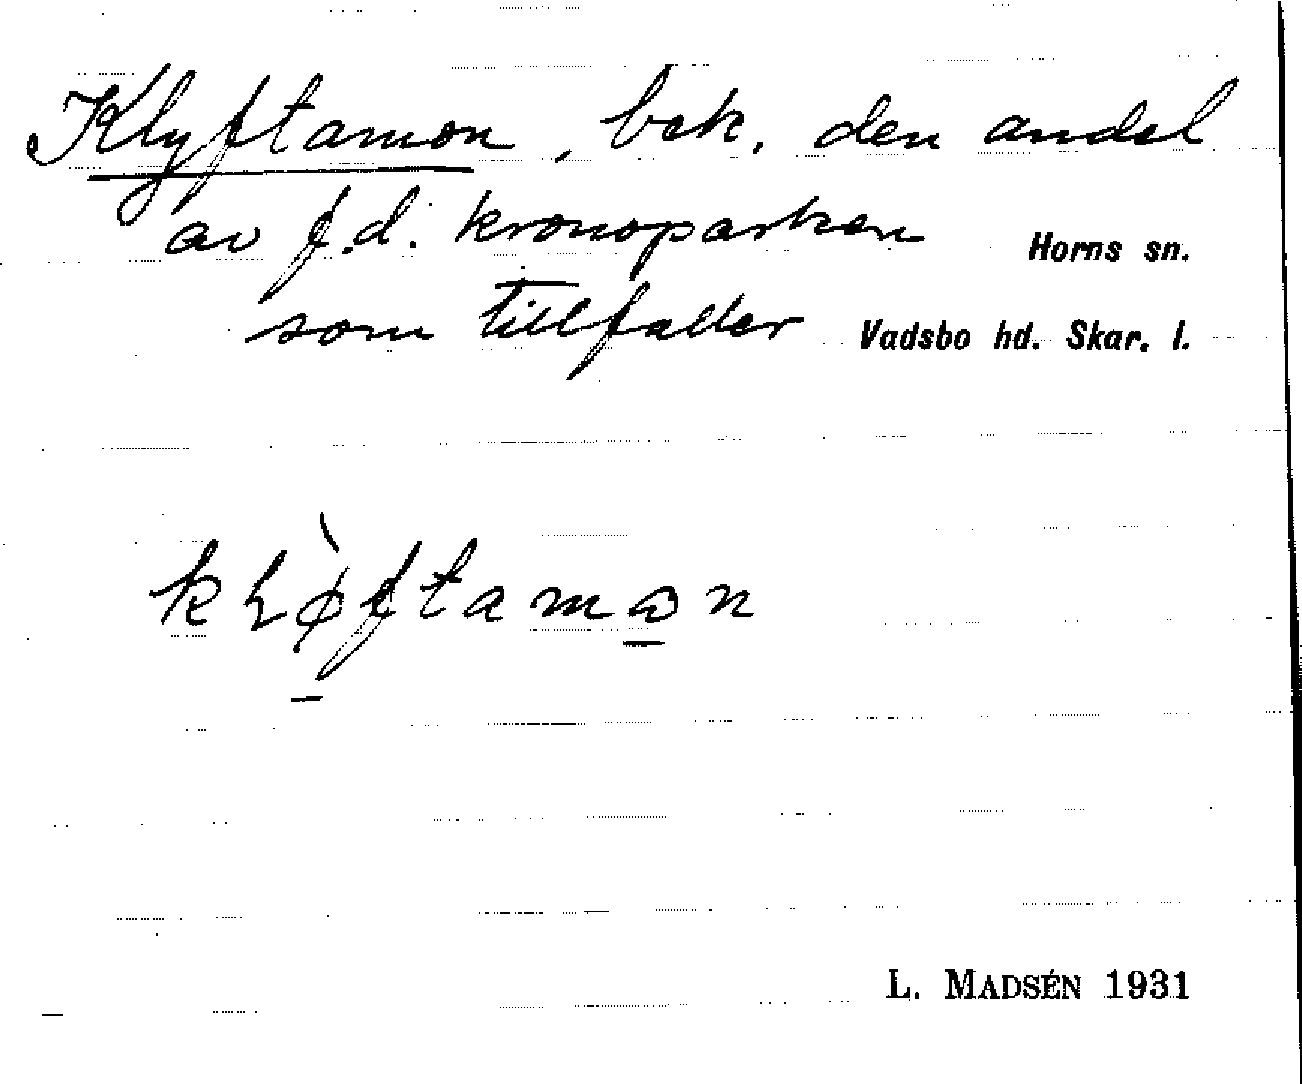 Klyftamon, bek. den andel
av f.d. kronoparken
Horns sn.
som tillfaller
Vadsbo hd. Skar. l.
L. MADSÉN 1931